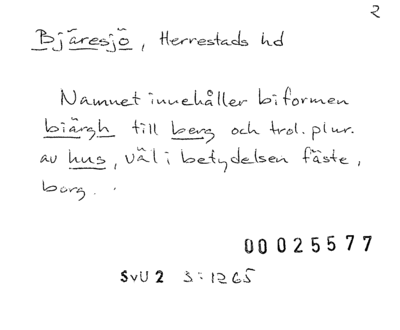 2
Bjäresjö, Herrestads hd
Namnet innehåller biformen
biärgh till berg och trol. plur.
av hus, väl i betydelsen fäste,
borg.
00025577
SvU2 3:1265